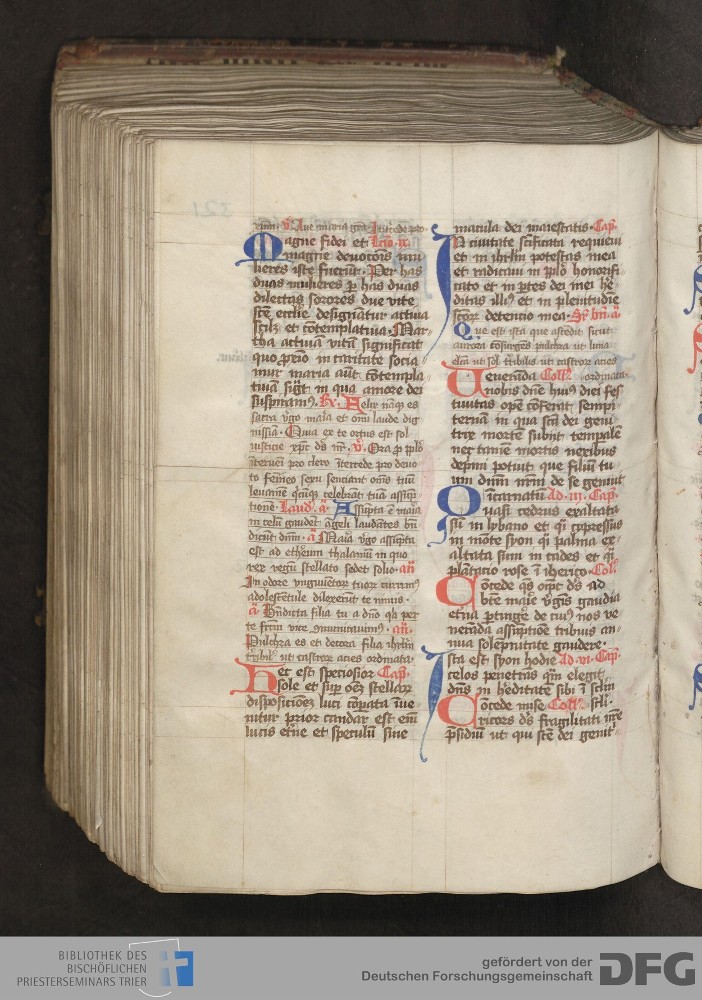 Aue maria gra
Magne fidei et Lcio. ix.
magne deuotois mu
lieres iste fuerut. Per has
duas mulieres p has duas
dilectas sorores due vite
scē ecclie designatur actiua
scilz et cōtemplatiua. Mar
tha actiuā vitā significat
quo prio in caritate socia
mur maria aūt contempla
tiuā sigt in qua amore dei
suspiram9. Rx. Felix nāq es
sacra v̾go maīa et omī laude dig
nissīa. Quia ex te ortus est sol
iusticie xpc ds nr. v. Ora p pplo
iterueni pro clero itercede pro deuo
to femineo sexu senciant oms tuū
leuamē qcuq celebrāt tuā assūp
tione. Laud. a. Assūpta ē maīa
in celū gaudent ageli laudātes bn
dicut dnm. a Maīa v̾go assūpta
est ad ethereum thalamū in quo
rex regū stellato sedet solio. an
In odore vnguētor tuor currim9
adolescētule dilexerūt te nimis.
a Bndicta filia tu a dno qa per
te fructū vite cōmunicauim9. an.
Pulchra es et decora filia ihrlm
tribil ut castror acies ordinata.
Hec est speciosior Cap.
sole et sup oēz stellar
disposiciōez luci cōpata iue
nitur prior candor est eni
lucis etne et speculū sine
macula dei maiestatis. Cap.
In ciuitate scificata requieui
et in ihrlm potestas mea
et radicaui in pplo honorifi
cato et in ptes dei mei he
ditas illi9 et in plenitudine
scor detencio mea. Sr bn. a
Que est ista que ascedit sicut
aurora cōsurgēs pulchra ut luna
elca ut sol tribilis ut castror acies
Ueneranda Coll. ordinata
nobis dne hui9 diei fes
tiuitas opē cōferat sempi
ternā in qua scā dei geni
trix mortē subijt tempalē
nec tamē mortis nexibus
depmi potuit que filiū tu
um dnm nrm de se genuit
incarnatū Ad. iii. Cap.
Quasi cedrus exaltata
sū in lybano et qi cypressus
in mōte syon qi palma ex
altata sum in cades et qi
plātacio rose ī iherico. Col.
Cōcede qs opc ds ad
bte maīe v̾gis gaudia
etna ptinge de cui9 nos ve
neranda assūptioē tribuis an
nua solēpnitate gaudere.
Ista est syon hodie Ad. vi. Cap.
celos penetrās qm elegit
dns in heditatē sibi ī sclm
Cōcede mise Coll. scli.
ricors ds fragilitati nre
psidiū ut qui scē dei genit
BIBLIOTHEK DES
BISCHÖFLICHEN
PRIESTERSEMINARS TRIER
gefördert von der
Deutschen Forschungsgemeinschaft
DFG